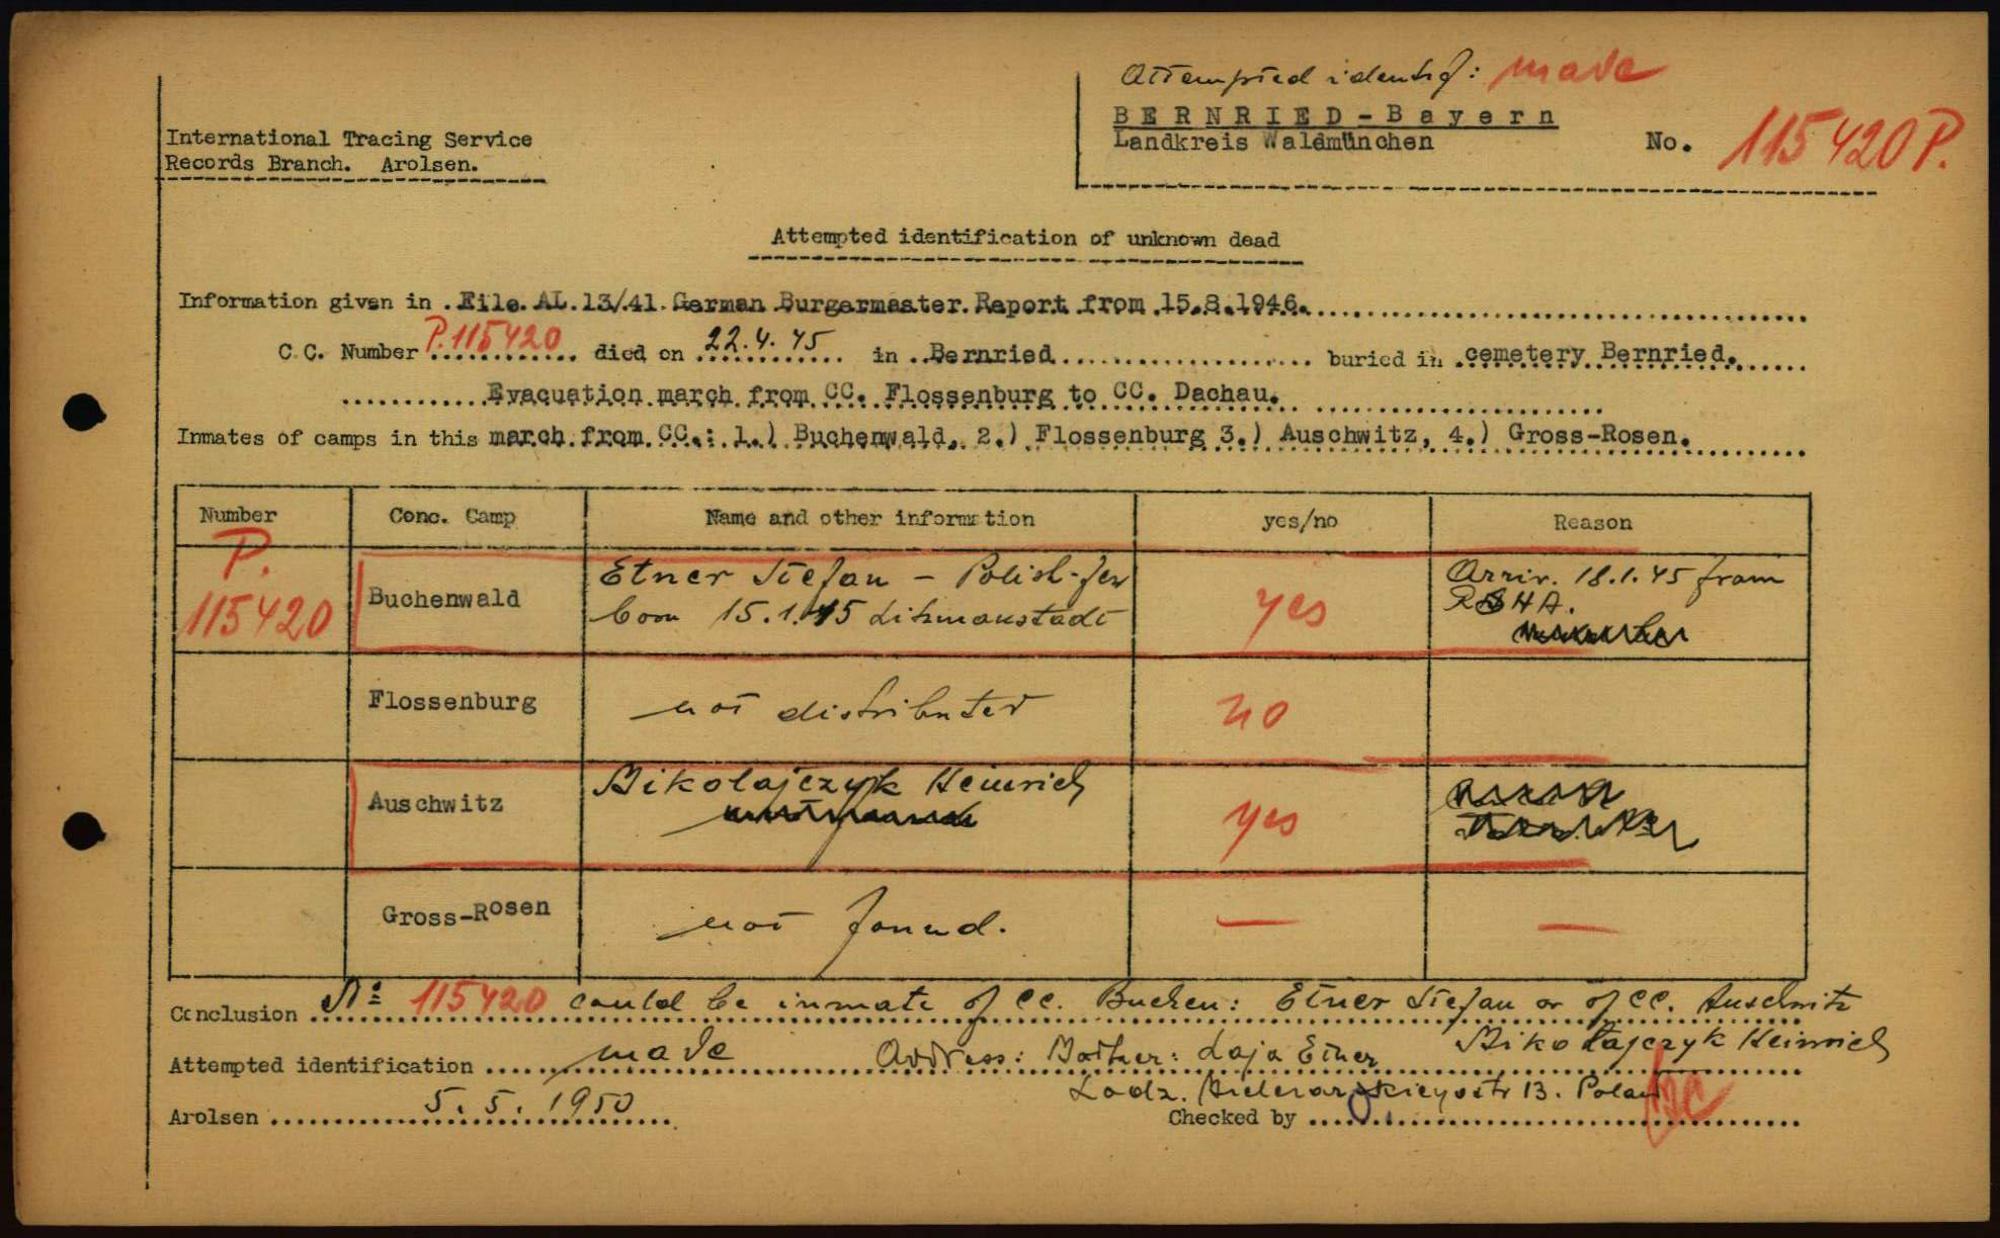 Attempted identif: made
BERNRIED-Bayern
Landkreis Waldmünchen
No. 115420 P.
International Tracing Service
Records Branch. Arolsen.
Attempted identification of unknown dead
Information given in File AL.13/41 German Burgermaster Report from 15.8.1946.
C.C. Number P.115420 died on 22.4.45 in Bernried buried in cemetery Bernried.
Evacuation march from CC. Flossenburg to CC. Dachau.
Inmates of camps in this march from CC.: 1.) Buchenwald, 2.) Flossenburg 3.) Auschwitz, 4.) Gross-Rosen.
Number Conc. Camp Name and other information yes/no Reason
P.
115420
Buchenwald
Etner Stefan - Polish-Jew
born 15.1. Litzmanstadt
yes
Arriv. 18.1.45 from
RSHA.
Flossenburg not distributed no
Auschwitz Mikolajczyk Heinrich yes
Gross-Rosen not found. — —
Conclusion No 115420 could be inmate of CC. Buchen: Etner Stefan or of CC. Auschwitz
Mikolajczyk Heinrich
Attempted identification made Address: Mother: Laja Etner
Lodz. 13. Poland
Arolsen 5.5.1950
Checked by